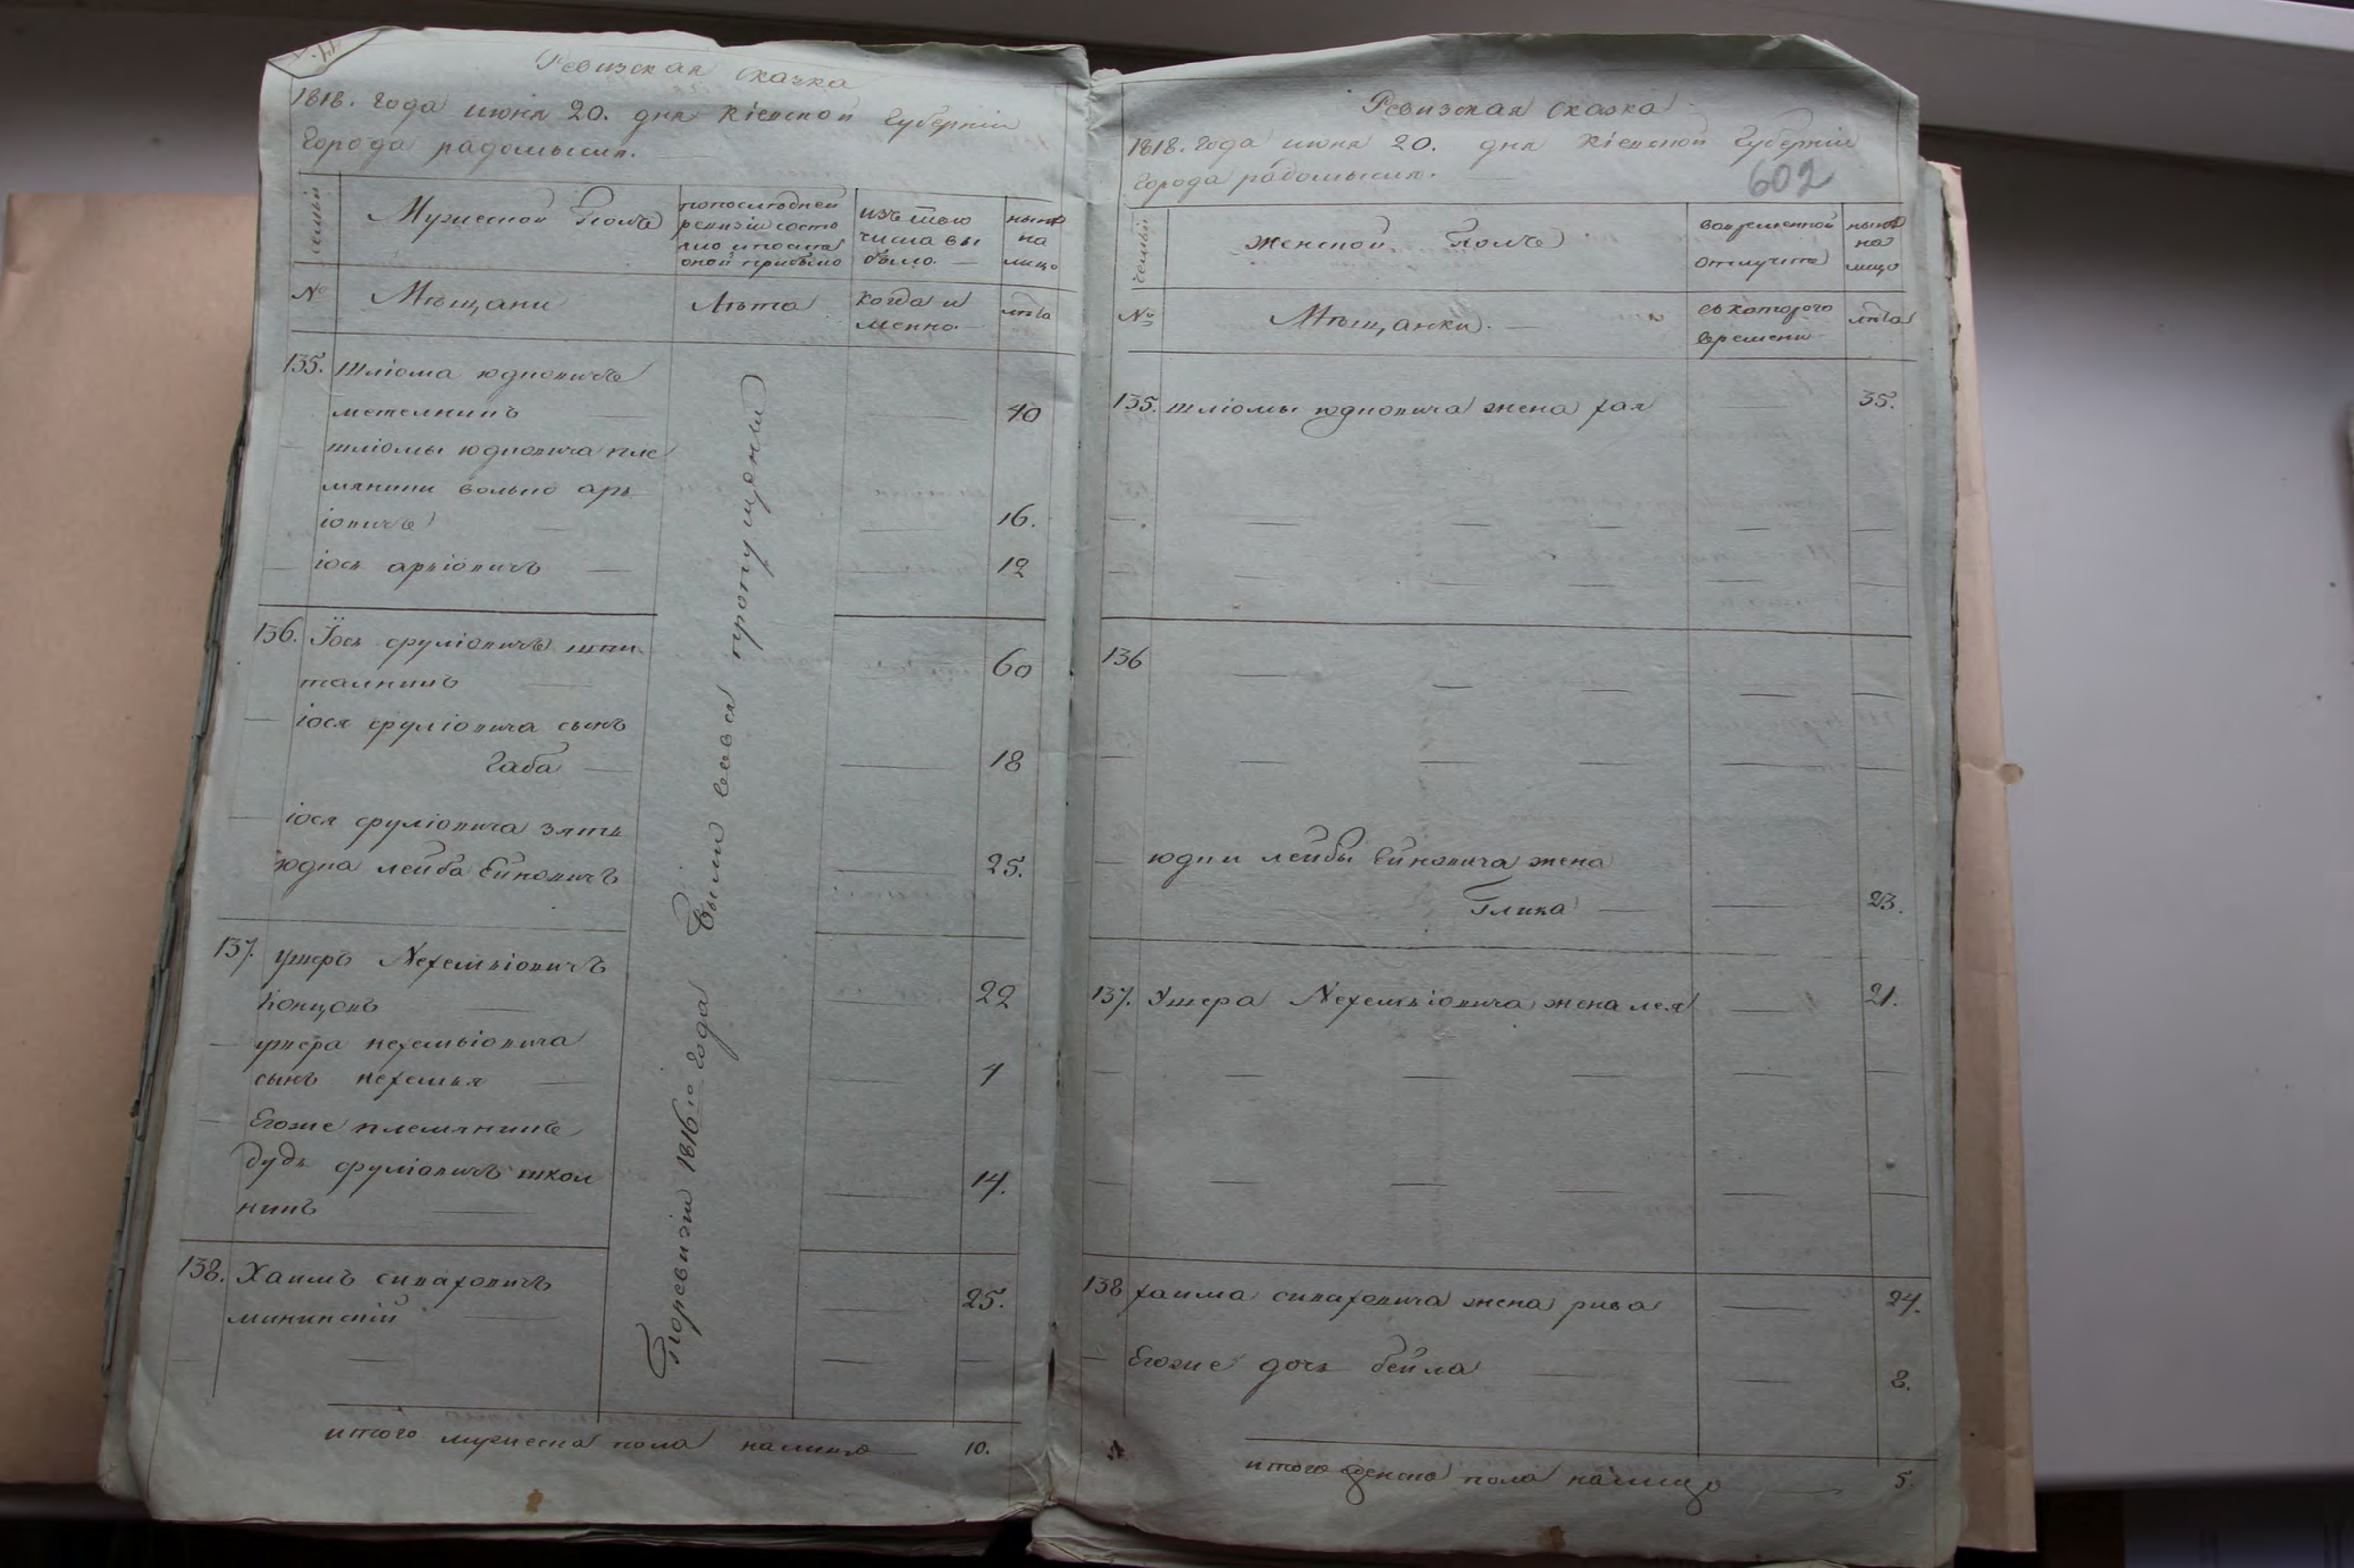 Ревизская сказка
1818. года июня 20. дня Кіевской Губерніи
города радомысля.
семьи
Мужеской полъ
попоследней
ревизіи состо
яло и после
оной прибыло
изъ того
числа вы
было.
ныне
на
лицо
№
Мѣщани
Лѣта
когда и
менно
лѣта
135. шліома юдковичъ
метелникъ 40
шліомы юдковича пле
мянники волько арь
іовичъ 16.
іось арьіовичъ 12
136. Іось сруліовичъ шпи
талникъ 60
іося сруліовича сынъ
Габа 18
іося сруліовича зять
юдка лейба Ейновичъ 25.
137. ушеръ Нехемьіовичъ
Концовъ 22
ушера нехемьіовича
сынъ нехемья 4
Егоже племянникъ
дудь сруліовичъ школ
никъ 14.
138. Хаимъ сипаховичъ
25.
Поревизіи 1816го года были совся пропущены
итого мужеска пола налицо 10.
Ревизская сказка
1818. года июня 20. дня Кіевской Губерніи
города радомысля.
602
семьи
женской полъ
вовременной
отлучке
ныне
на
лицо
№
Мѣщанки.
съ которого
времени
лѣта
135. шліомы юдковича жена хая 35.
136
юдки лейбы Ейновича жена
Глика 23.
137. Ушера Нехемьіовича жена лея 21.
138 хаима сипаховича жена рива 24.
Егоже дочь бейла 8.
итого женска пола налицо 5.